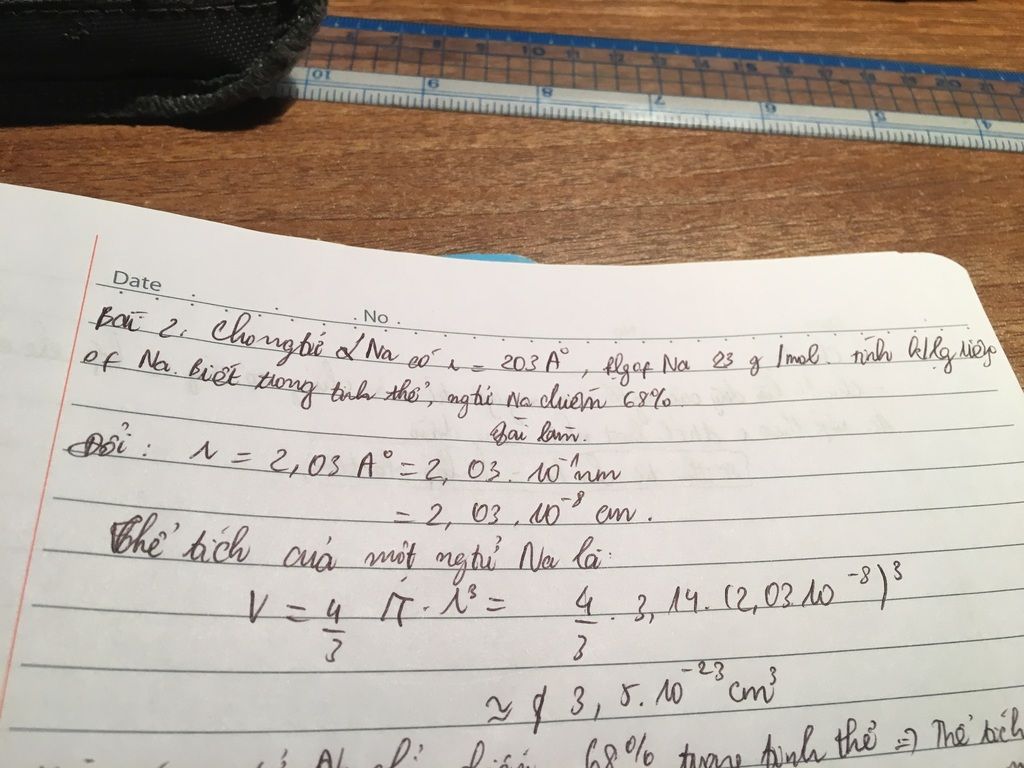 10 9 8 7 6 5 4
Date
No
Bài 2. Cho ngtử Na có r = 203 A°, of Na 23 g /mol. tính riêng
of Na. Biết trong tinh thể, ngtử Na chiếm 68%.
Bài làm.
Đổi: r = 2,03 A° = 2,03.10⁻¹ nm
= 2,03.10⁻⁸ cm.
Thể tích của một ngtử Na là:
V = 4/3 π.r³ = 4/3 . 3,14.(2,03 10⁻⁸)³
≈ 3,5.10⁻²³ cm³
68% trong tinh thể => Thể tích